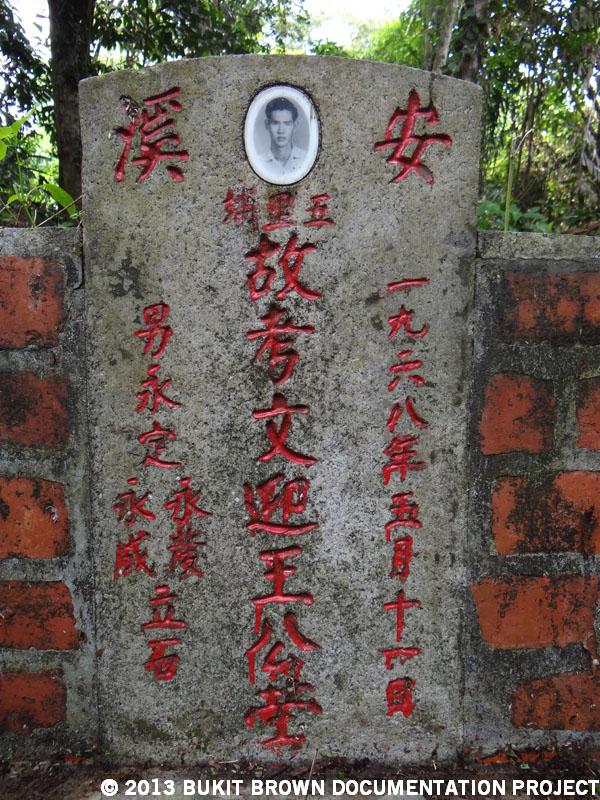 安溪
五里
一九六八年五月十一日
故考文迎王公塋
男永定
永發
永成
立石
© 2013 BUKIT BROWN DOCUMENTATION PROJECT